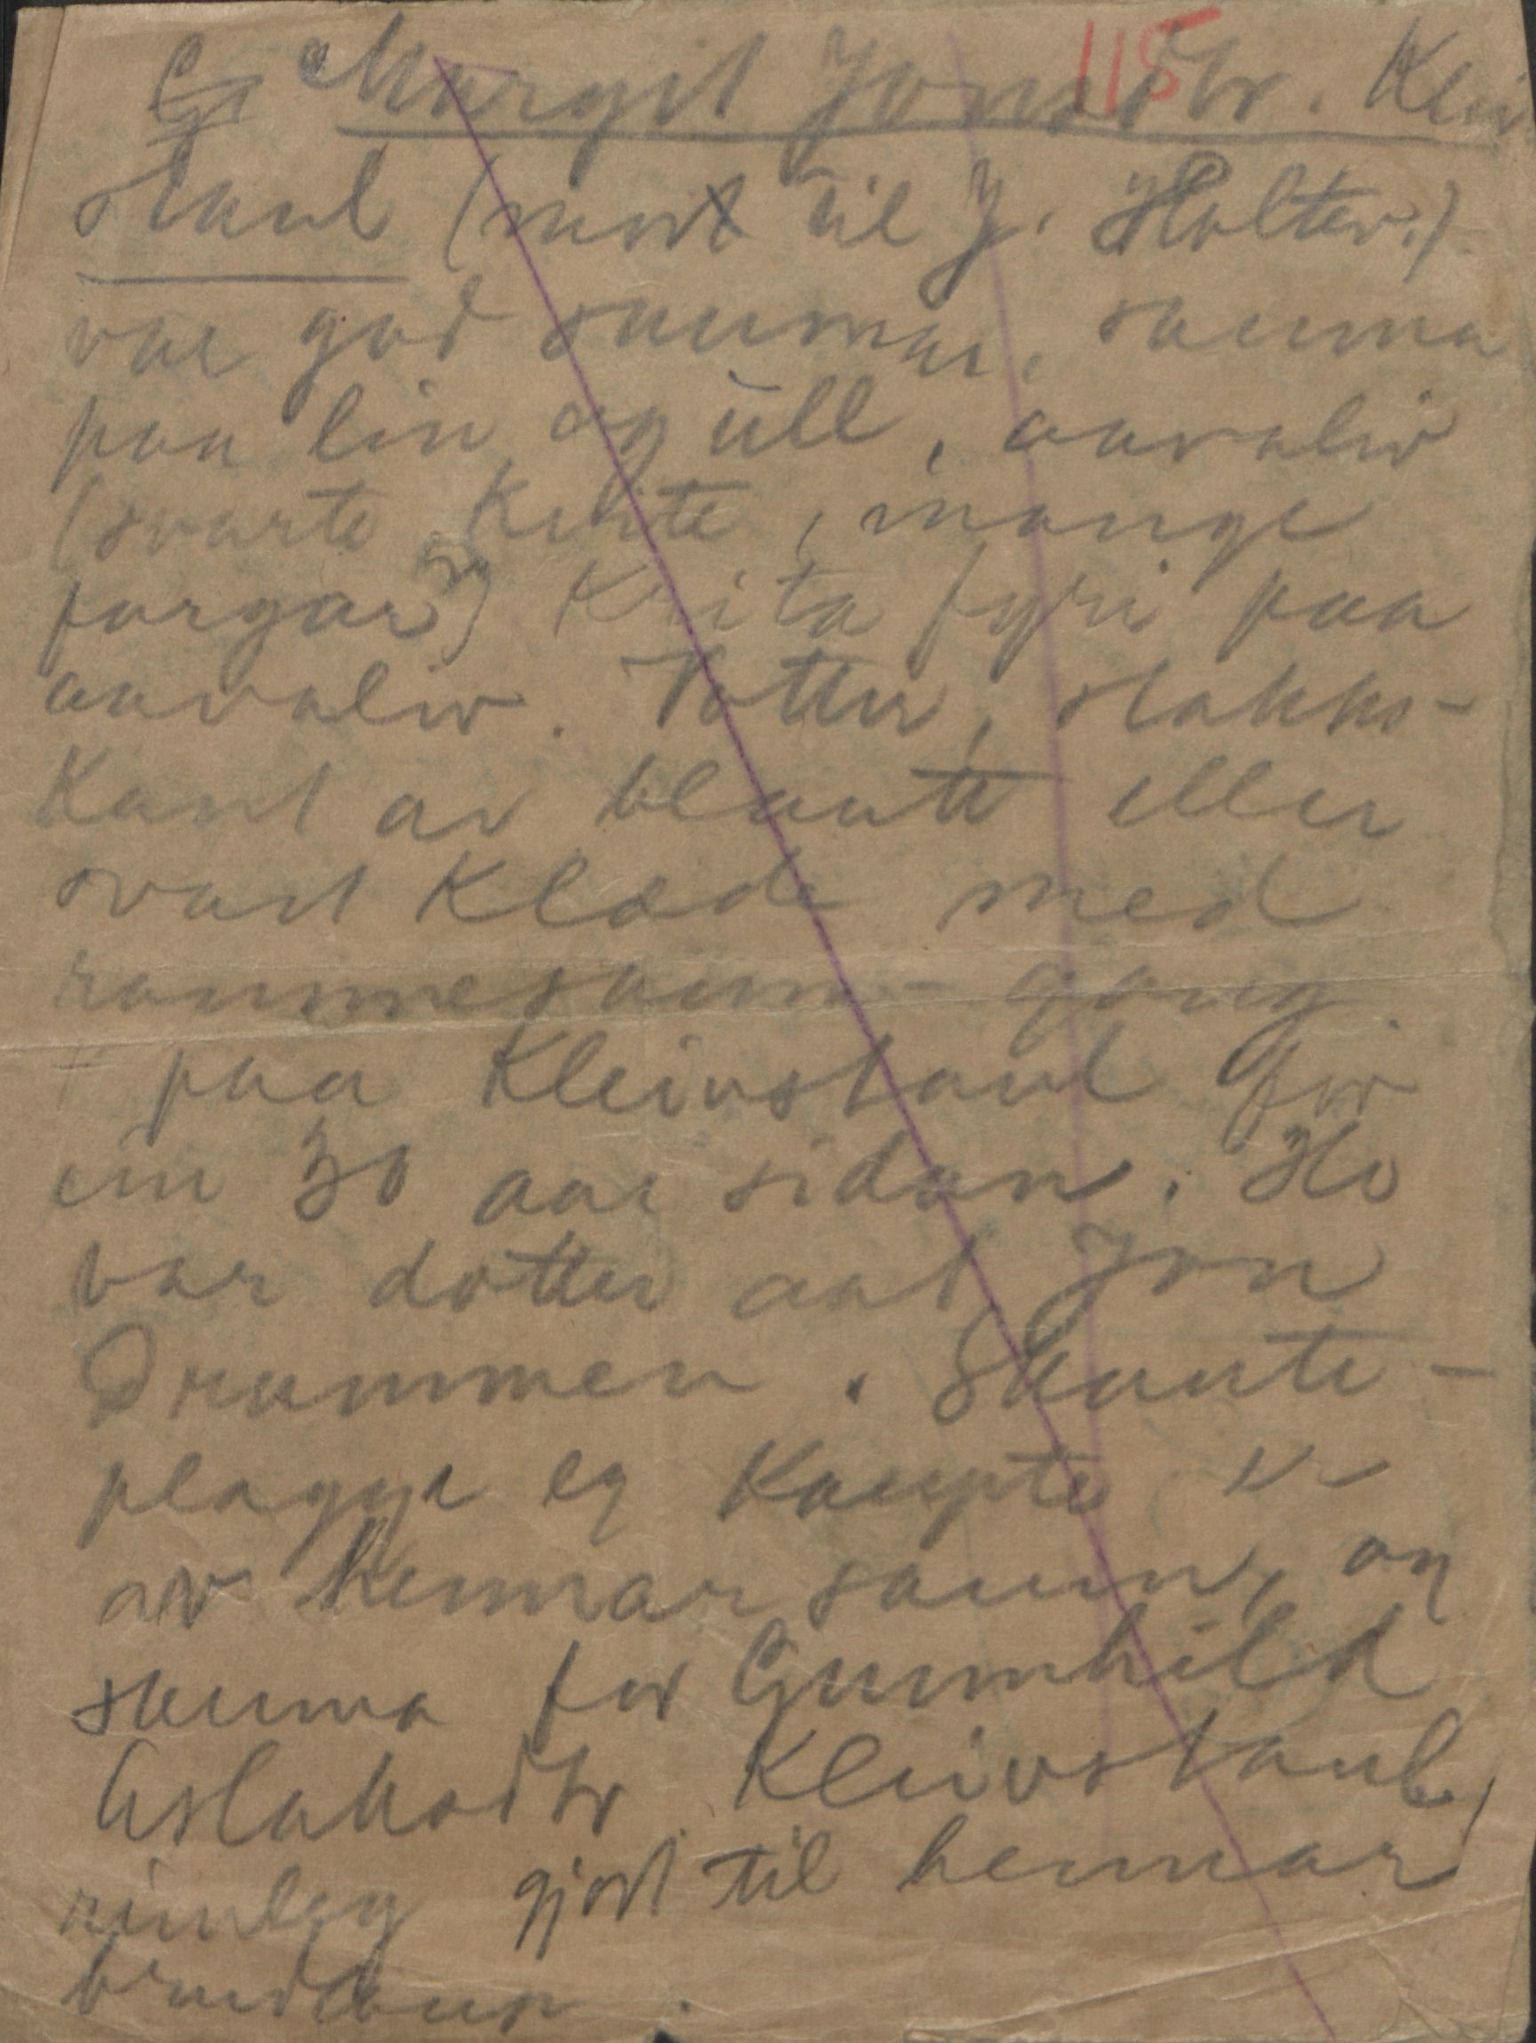 115
Margit Jonsdtr. Kleiv
staul (mor til J. Holter.)
var god saumar, sauma
paa lin og ull, aavaliv
(svarte kvite, mange
fargar) Krita fyri paa
aavaliv. Votter, stakks-
kant av blautt eller
svart klæde med
rammesaum- gang
+ paa Kleivstaul for
ein 30 aar sidan. Ho
var dotter aat Jon
Drammen. Skaute-
plagge eg kaupte er
av hennar saum, og
sauma for Gunnhild
Aslaksdtr Kleivstaul,
rimleg gjort til hennar
brudlaup.